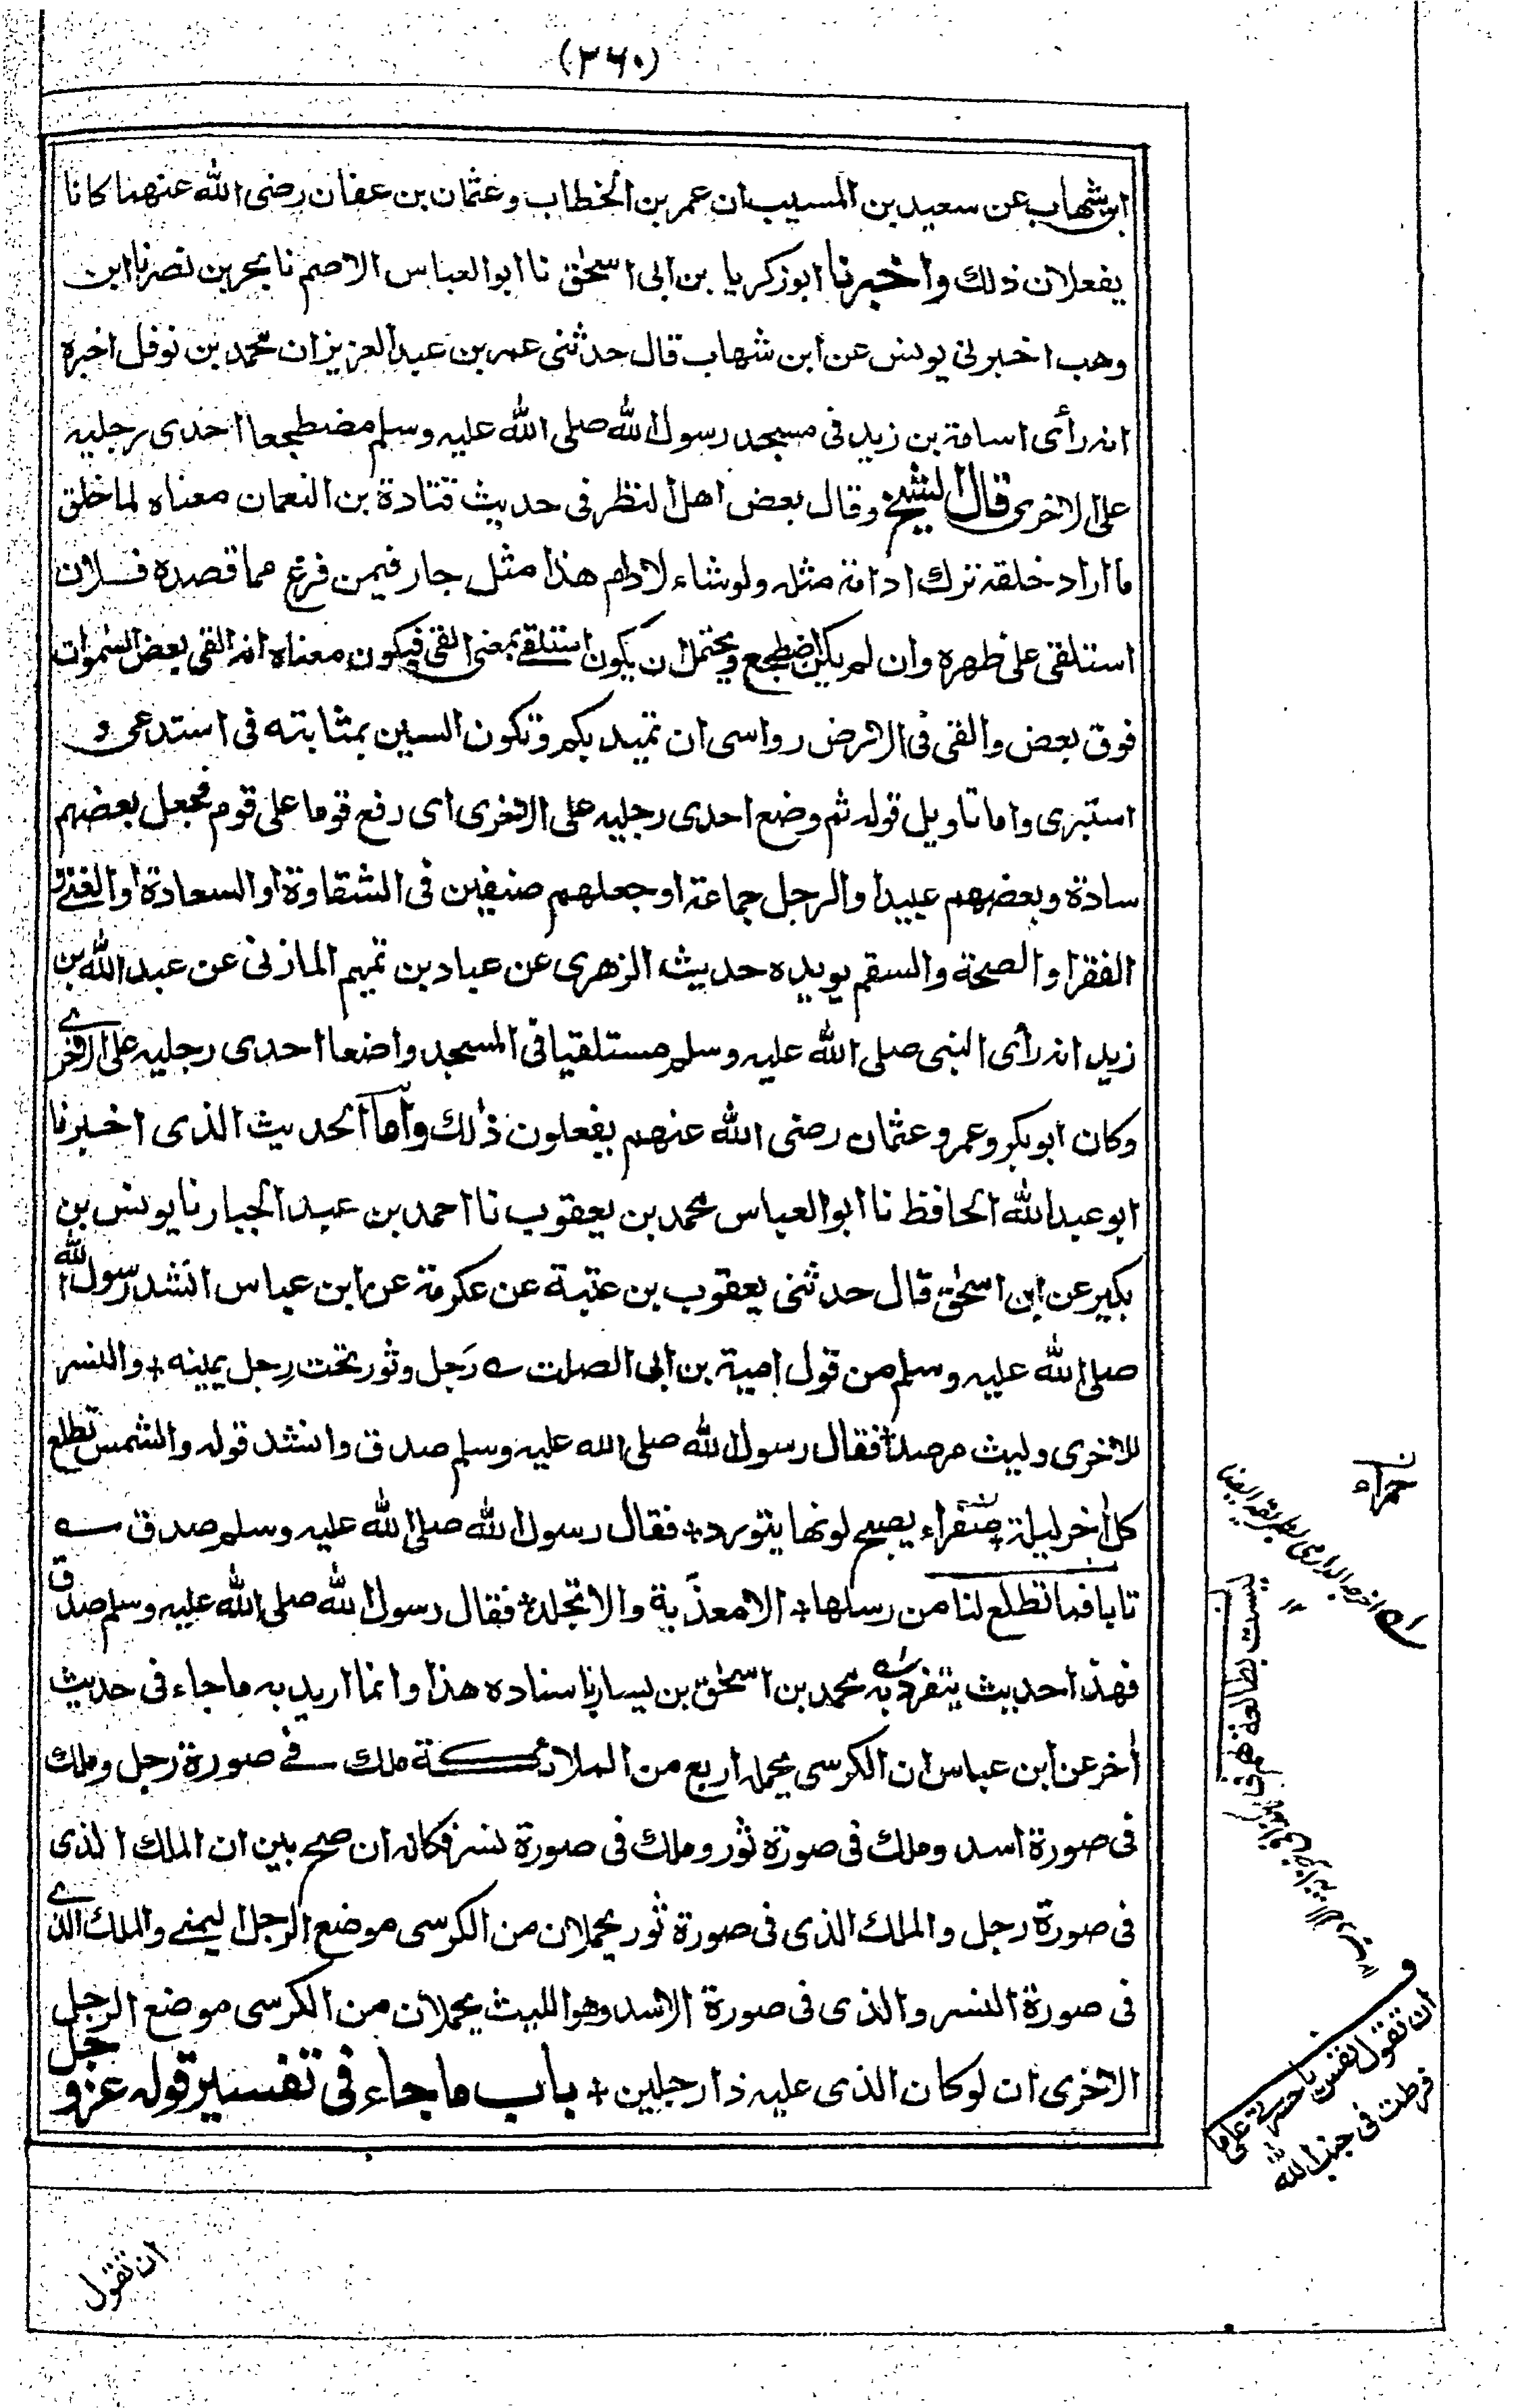 (٣٦٠)
ابن شهاب عن سعيد بن المسيب ان عمر بن الخطاب وعثمان بن عفان رضى الله عنهما كانا
يفعلان ذلك واخبرنا ابوزكريا بن ابى اسحٰق نا ابو العباس الاصم نا بحر بن نصر نا ابن
وهب اخبرنى يونس عن ابن شهاب قال حدثنى عمر بن عبد العزيز ان محمد بن نوفل اخبره
انه رأى اسامة بن زيد فى مسجد رسول الله صلى الله عليه وسلم مضطجعا احدى رجليه
على الاخرى قال الشيخ وقال بعض اهل النظر فى حديث قتادة بن النعمان معناه لما خلق
ما اراد خلقه ترك ادامة مثله ولو شاء لادام هذا مثل جار فيمن فرغ مما قصده فلان
استلقى على ظهره وان لم يكن اضطجع ويحتمل ان يكون استلقى بمعنى القى فيكون معناه انه القى بعض السمٰوات
فوق بعض والقى فى الارض رواسى ان تميد بكم وتكون السين بمثابته فى استدعى و
استبرى واما تاويل قوله ثم وضع احدى رجليه على الاخرى اى رفع قوما على قوم فجعل بعضهم
سادة وبعضهم عبيدا والرجل جماعة او جعلهم صنفين فى الشقاوة او السعادة او الغنى و
الفقر او الصحة والسقم يويده حديث الزهرى عن عباد بن تميم المازنى عن عبد الله بن
زيد انه رأى النبى صلى الله عليه وسلم مستلقيا فى المسجد واضعا احدى رجليه على الاخرى
وكان ابو بكر وعمر وعثمان رضى الله عنهم يفعلون ذلك واما الحديث الذى اخبرنا
ابو عبد الله الحافظ نا ابو العباس محمد بن يعقوب نا احمد بن عبد الجبار نا يونس بن
بكير عن ابن اسحٰق قال حدثنى يعقوب بن عتبة عن عكرمة عن ابن عباس انشد رسول الله
صلى الله عليه وسلم من قول امية بن ابى الصلت ے رَجل وثور تحت رِجل يمينه + والنسر
للاخرى وليث مرصد + فقال رسول الله صلى الله عليه وسلم صدق وانشد قوله والشمس تطلع
كل اٰخر ليلة + صفراء يصبح لونها يتورد + فقال رسول الله صلى الله عليه وسلم صدق ے
تابا فما تطلع لنا من رسلها + الا معذّبة والا تجلد + فقال رسول الله صلى الله عليه وسلم صدق
فهذا حديث يتفرد به محمد بن اسحٰق بن يسار باسناده هذا وانما اريد به ماجاء فى حديث
اٰخر عن ابن عباس ان الكرسى يحمله اربع من الملائكة ملك فى صورة رجل وملك
فى صورة اسد وملك فى صورة ثور وملك فى صورة نسر فكانه ان صح بين ان الملك الذى
فى صورة رجل والملك الذى فى صورة ثور يحملان من الكرسى موضع الرجل اليمنى والملك الذى
فى صورة النسر والذى فى صورة الاسد وهو الليث يحملان من الكرسى موضع الرجل
الاخرى ان لو كان الذى عليه ذا رجلين + باب ماجاء فى تفسير قوله عزو جل
ن
حمراء
اخرجه الدارمى بطريقه ايضا
ليست بطالعة لهم فى
ان تقول نفس يا حسرتى على ما
فرطت فى جنب الله
ان تقول